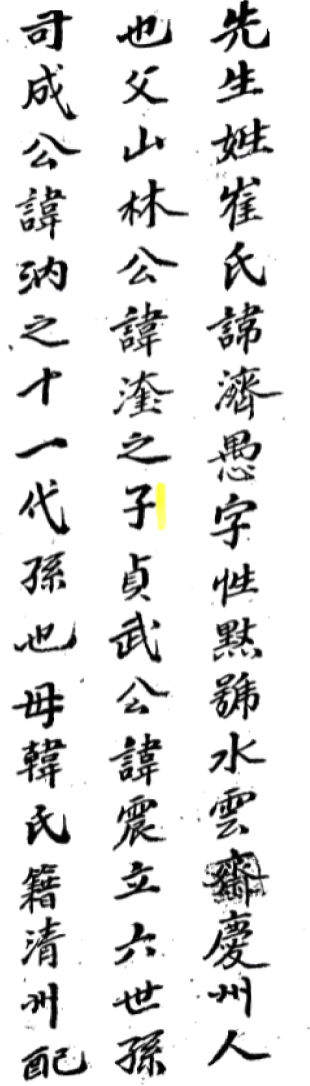 先生姓崔氏諱濟愚字性黙號水雲齋慶州人
也父山林公諱鋈之子貞武公諱震立六世孫
司成公諱汭之十一代孫也母韓氏籍清州配